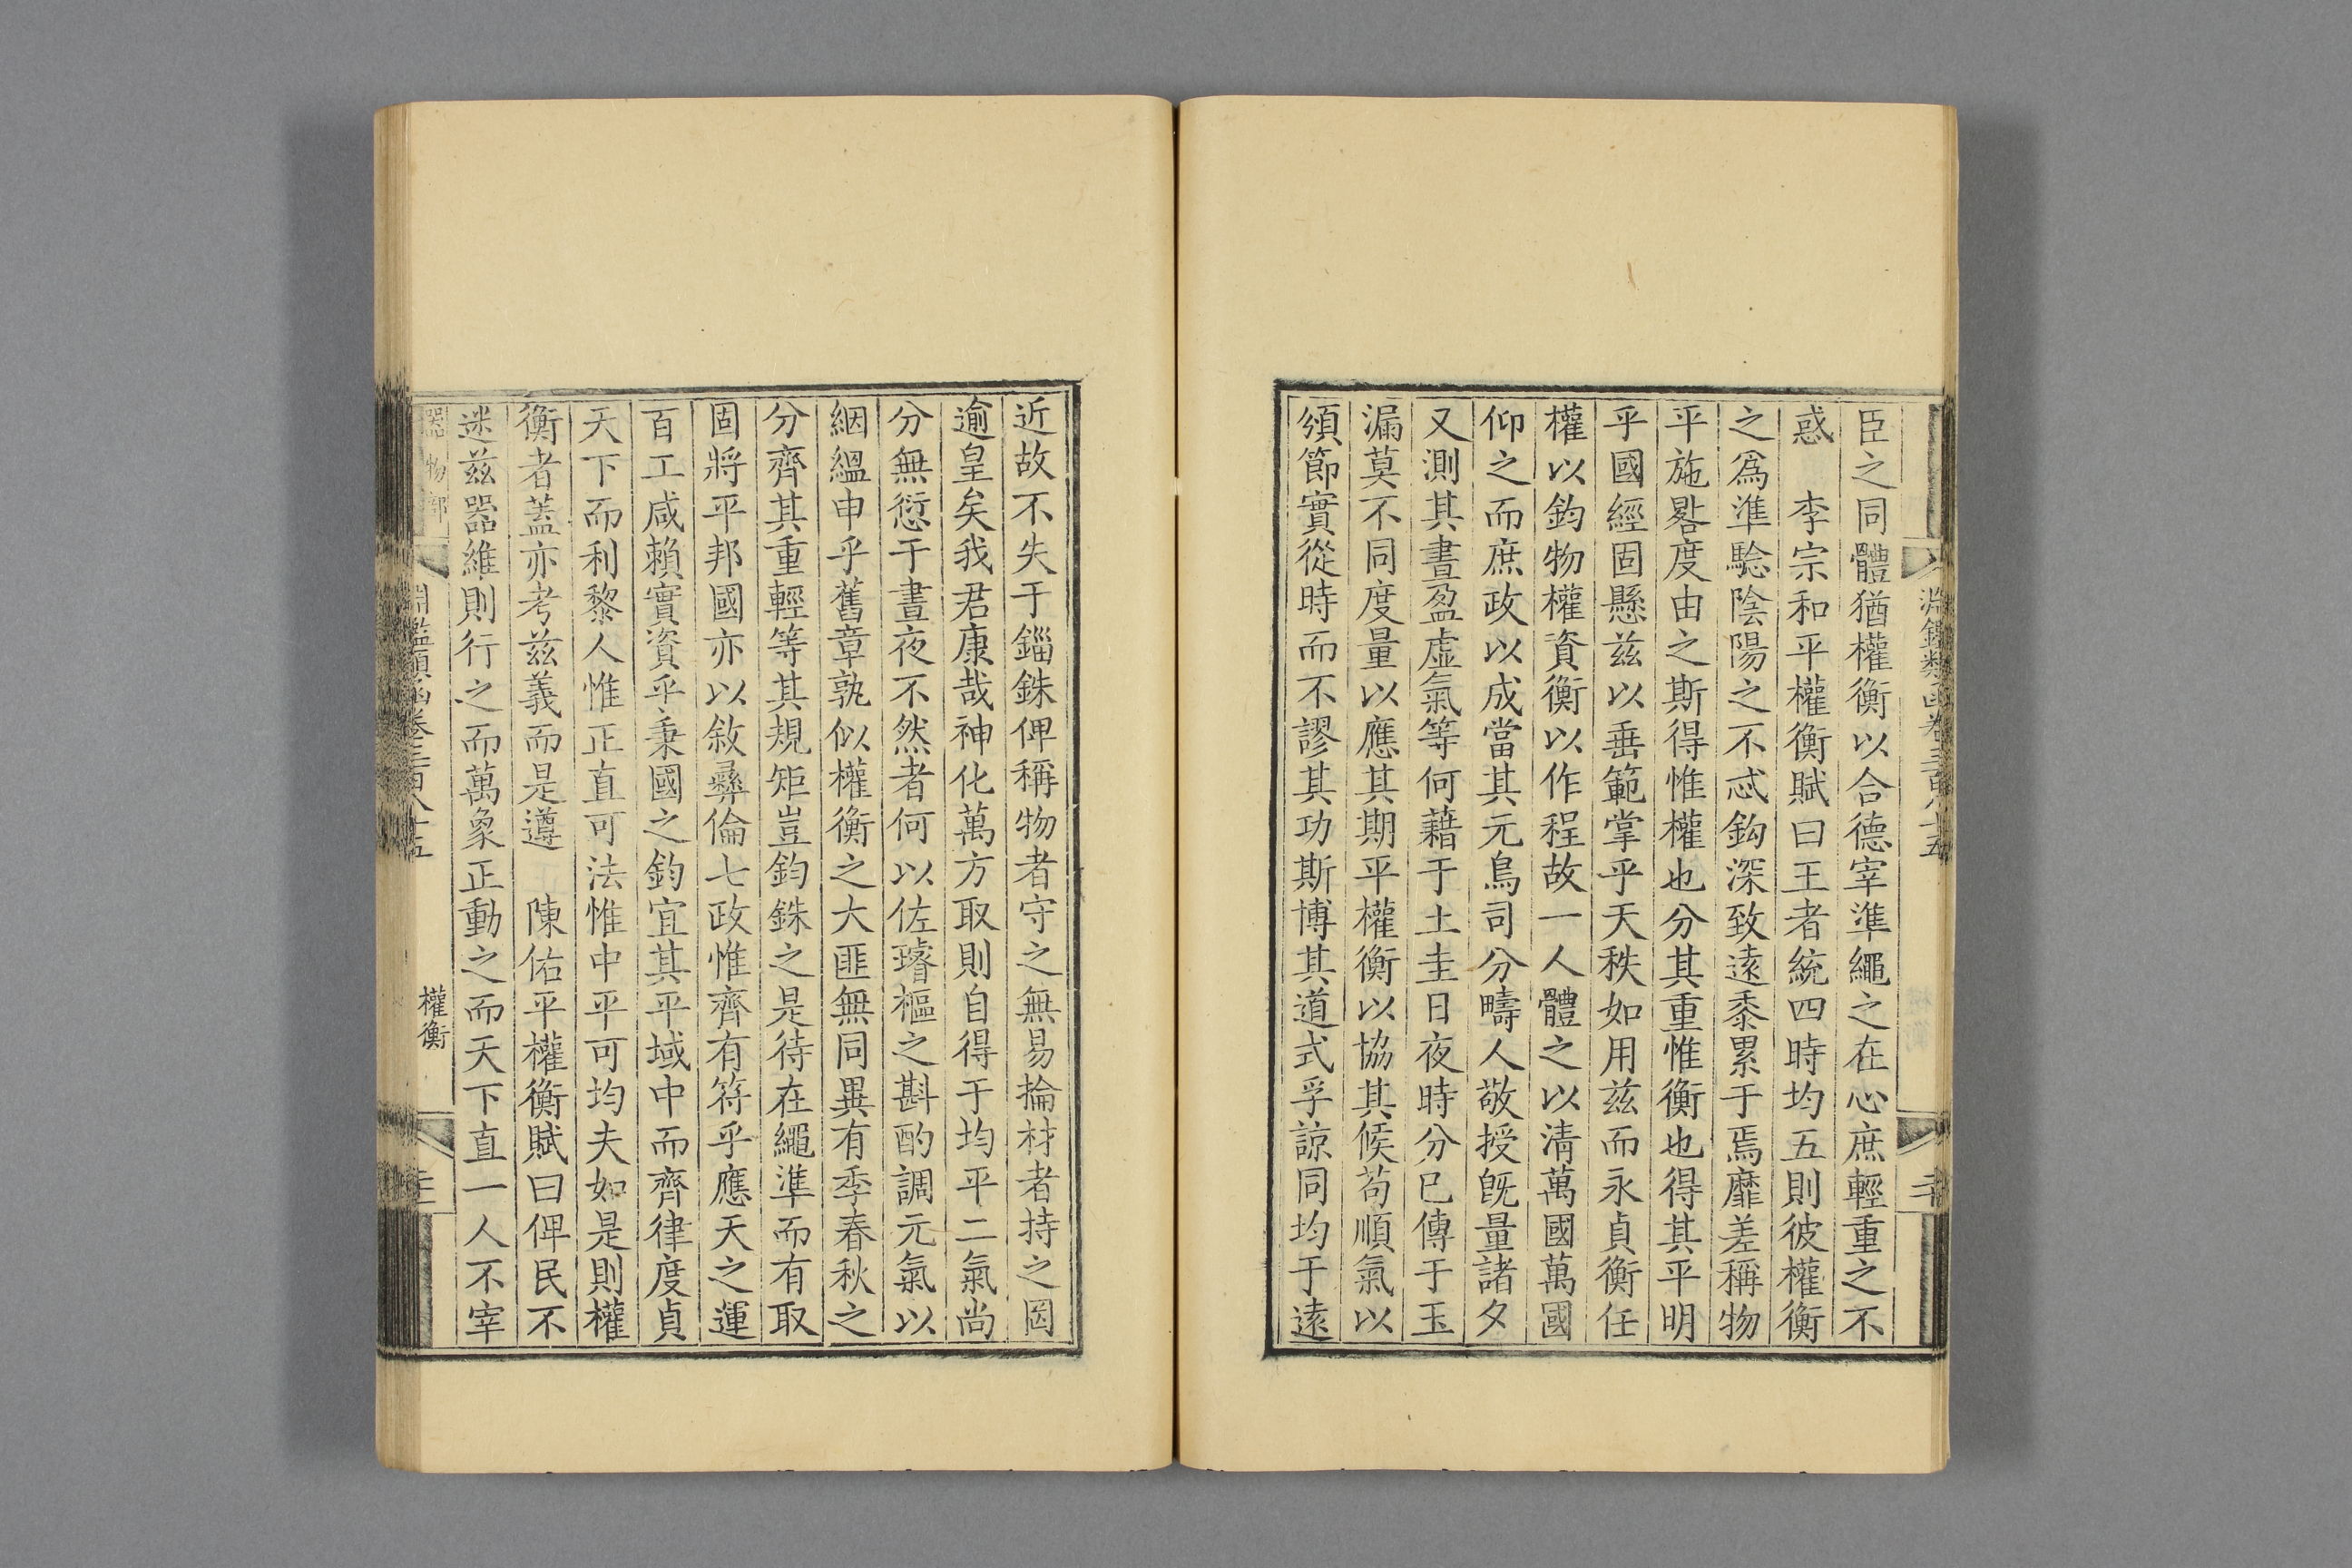 臣之同體猶權衡以合德宰準繩之在心庶輕重之不
惑　李宗和平權衡賦曰王者統四時均五則彼權衡
之爲準驗陰陽之不忒鈎深致逺黍累于焉靡差稱物
平施晷度由之斯得惟權也分其重惟衡也得其平明
乎國經固懸兹以垂範掌乎天秩如用兹而永貞衡任
權以鈞物權資衡以作程故一人體之以清萬國萬國
仰之而庶政以成當其元鳥司分疇人敬授旣量諸夕
又測其晝盈虛氣等何藉于土圭日夜時分已傳于玉
漏莫不同度量以應其期平權衡以協其候苟順氣以
頒節實從時而不謬其功斯博其道式孚諒同均于逺
近故不失于錙銖俾稱物者守之無易掄材者持之罔
逾皇矣我君康哉神化萬方取則自得于均平二氣尚
分無愆于晝夜不然者何以佐璿樞之斟酌調元氣以
絪縕申乎舊章孰似權衡之大匪無同異有季春秋之
分齊其重輕等其規矩豈鈞銖之是待在繩準而有取
固將平邦國亦以敘彞倫七政惟齊有符乎應天之運
百工咸賴實資乎秉國之鈞宜其平域中而齊律度貞
天下而利黎人惟正直可法惟中平可均夫如是則權
衡者蓋亦考兹義而是遵　陳佑平權衡賦曰俾民不
迷兹器維則行之而萬象正動之而天下直一人不宰
器物部
淵鑑類函卷三百八十五
權衡